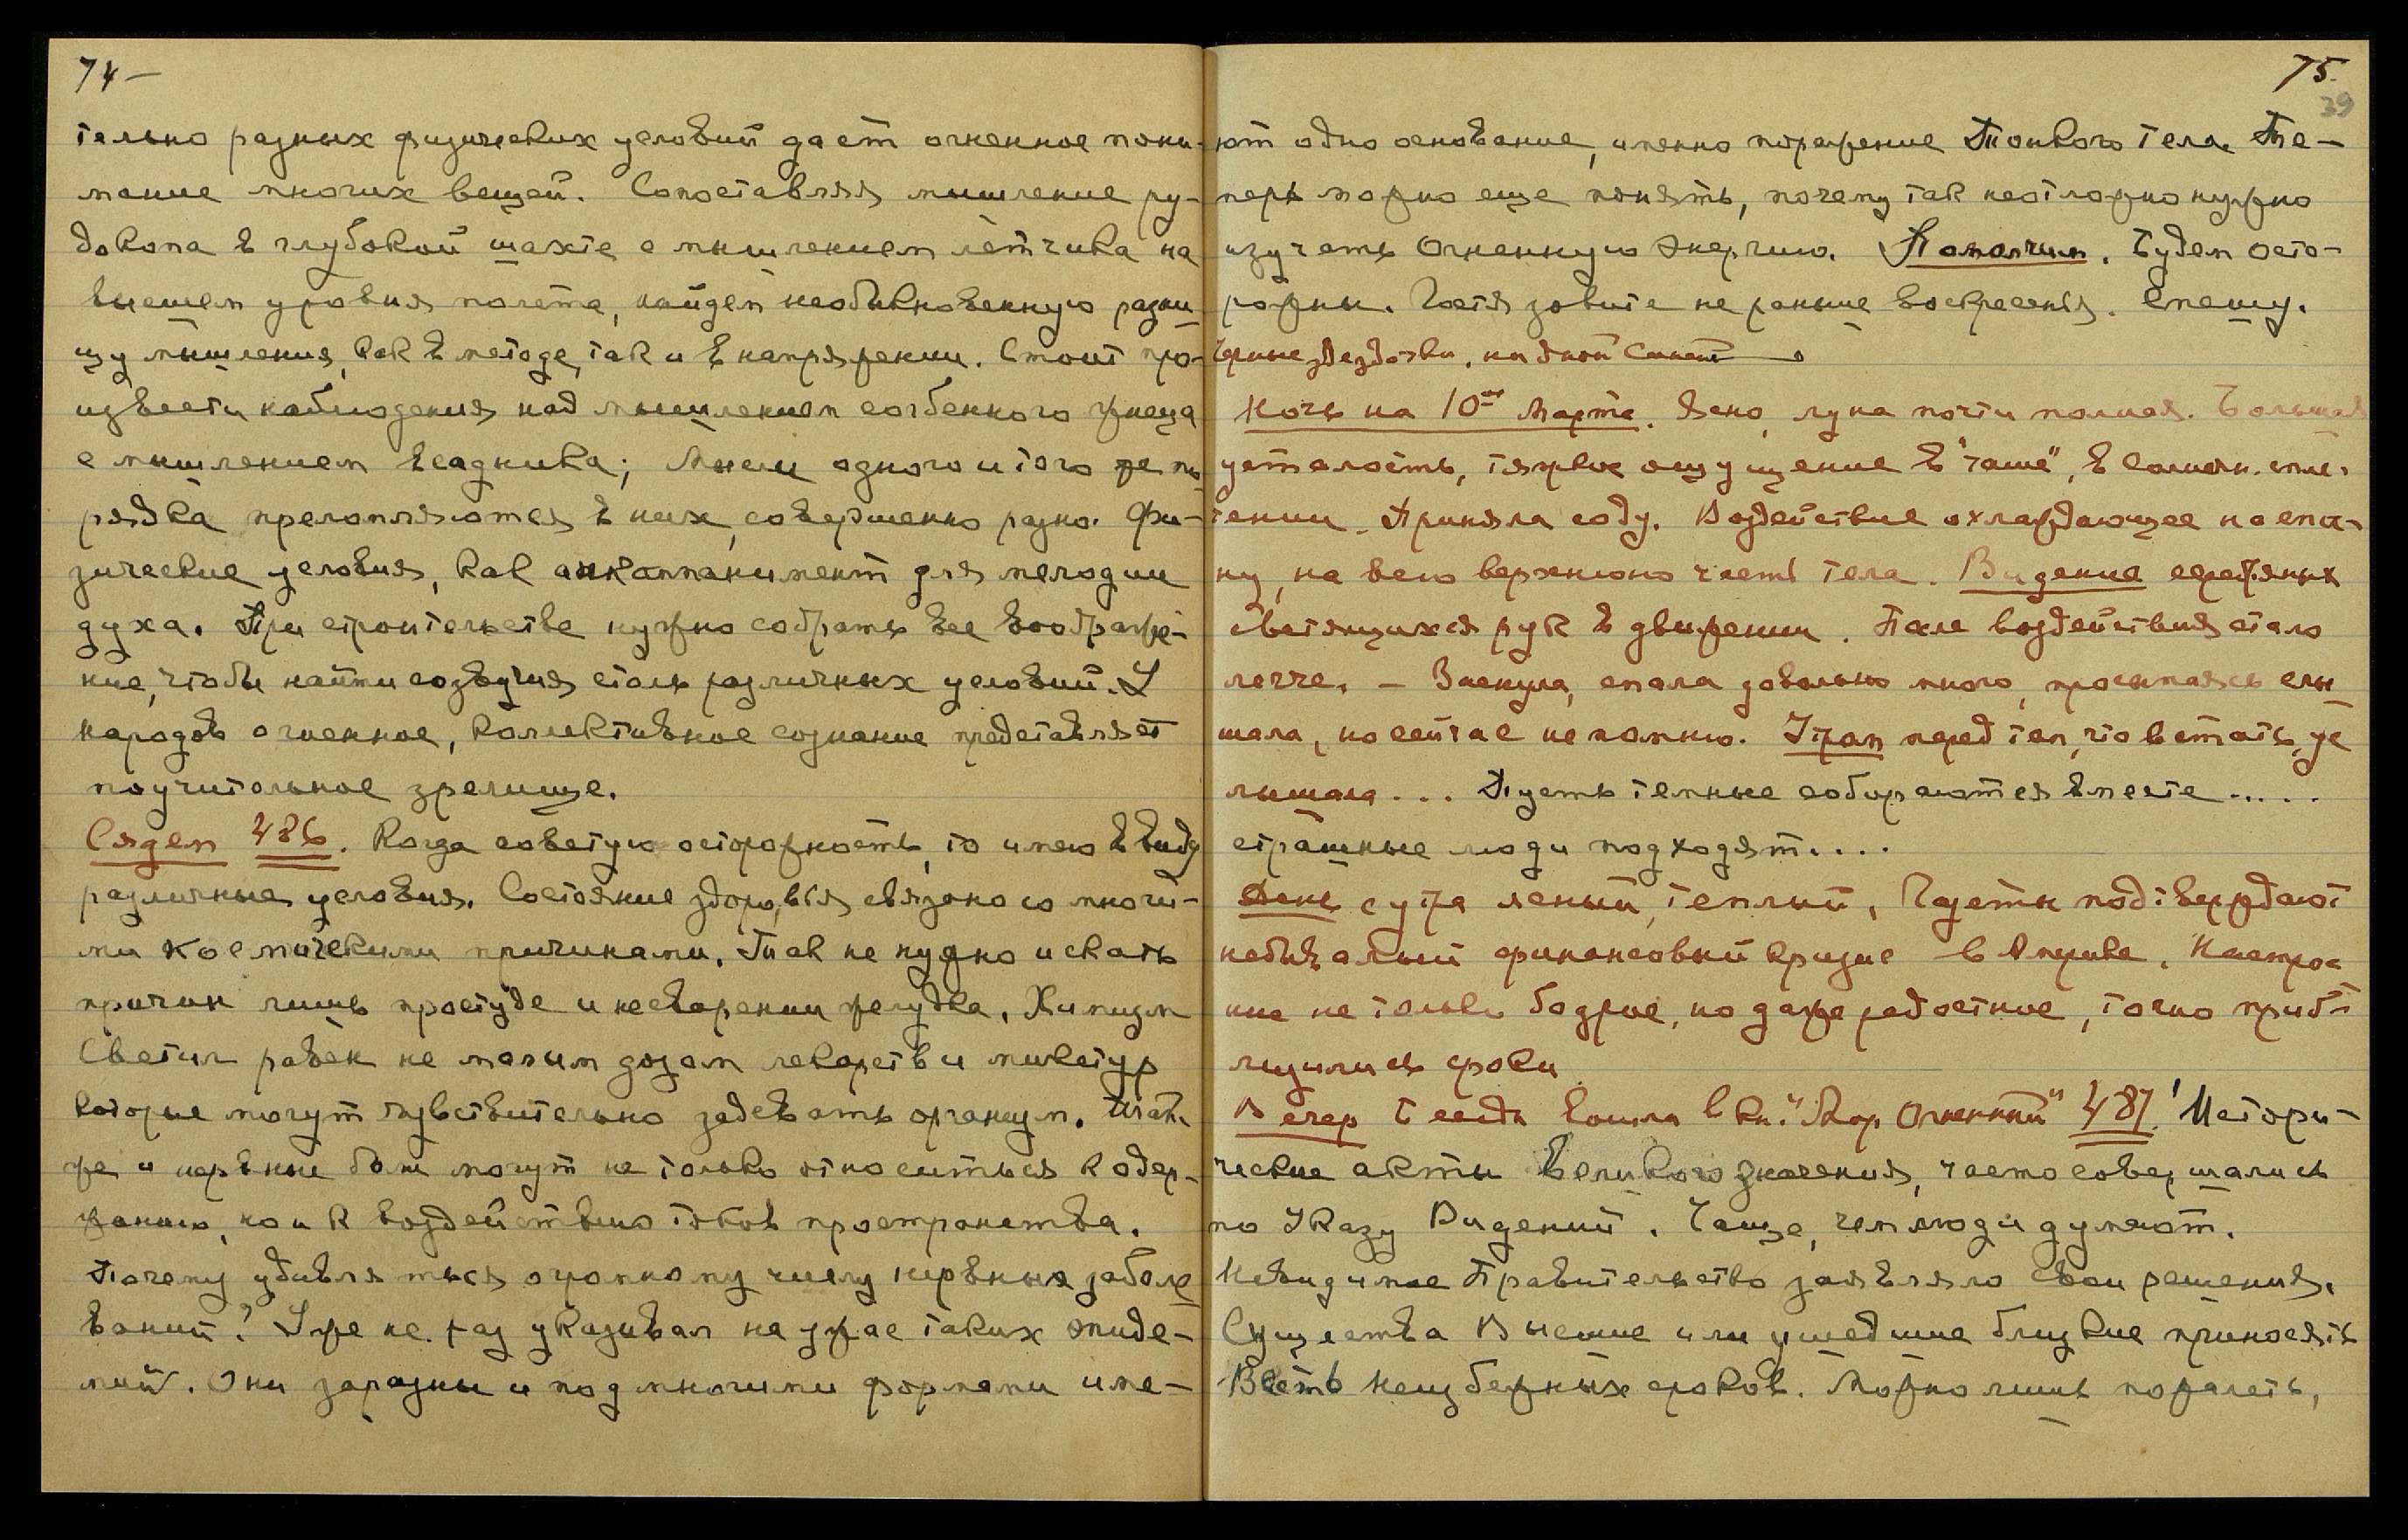 74 —
тельно разных физических условий дает огненное пони-
мание многих вещей. Сопоставляя мышление ру-
докопа в глубокой шахте с мышлением лётчика на
высшем уровня полета, найдем необыкновенную разни
цу мышления, как в методе, так и в напряжении. Стоит про-
извести наблюдения над мышлением согбенного жнеца
с мышлением всадника; Мысли одного и того же по
рядка преломляются в них совершенно разно. Фи-
зические условия, как аккомпанимент для мелодии
духа. При строительстве нужно собрать все воображе-
ние, чтобы найти созвучия столь различных условий. У
народов огненное, коллективное сознание представляет
поучительное зрелище.
Сядем 486. Когда советую осторожность, то имею в виду
различные условия. Состояние здоровья связано со многи-
ми космическими причинами. Так не нужно искать
причин лишь простуде и несварении желудка, Химизм
Светил равен не малым дозам лекарств и микстур
которые могут чувствительно задевать организм. Так
же и нервные боли могут не только относиться к одер-
жанию, но и к воздействию токов пространства.
Почему удивляться огромному числу нервных заболе
ваний? Уже не раз указывал на ужас таких эпиде-
мий. Они заразны и под многими формами име-
75.
39
ют одно основание, именно поражение Тонкого тела. Те-
перь можно еще понять, почему так неотложно нужно
изучать Огненную Энергию. Помолчим. Будем осто-
рожны. Гостя зовите не раньше воскресенья. Спешу.
Черные звездочки, на дной
Ночь на 10ое Марта. Ясно, луна почти полная. Большая
усталость, тяжкое ощущение в "чаше", в солнечн. спле-
тении. Приняла соду. Воздействие охлаждающее на спи-
ну, на всю верхнюю часть тела. Видение серебряных
светящихся рук в движении. После воздействия стало
легче. — Заснула, спала довольно много, просыпаясь слы
шала, но сейчас не помню. Утром перед тем, что встать, ус
лышала... Пусть темные собираются вместе .....
страшные люди подходят....
День с утра ясный, теплый, Газеты подтверждают
небывалый финансовый кризис в Америке. Настрое
ние не только бодрое, но даже радостное, точно приб-
лизились сроки
Вечер Беседа вошла в кн. "Мир Огненный" 487. Истори-
ческие акты Великого значения, часто совершались
по Указу Видений. Чаще, чем люди думают.
Невидимое Правительство заявляло свои решения.
Существа Высшие или ушедшие близкие приносять
Весть неизбежных сроков. Можно лишь пожалеть,